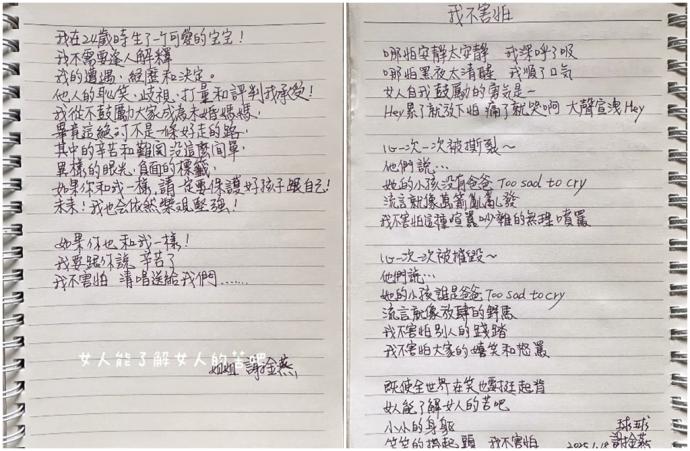 我在24歲時生了一个可愛的宝宝！
我不需要逢人解釋
我的遭遇，經歷和決定。
他人的取笑、歧視、打量和評判我承受！
我從不鼓勵大家成為未婚媽媽，
畢竟這絕对不是一條好走的路，
其中的辛苦和難関没這麼簡單，
異樣的眼光，負面的標籤，
如果你和我一樣，請 保護好孩子跟自己！
未來！我也会依然樂观堅強！
如果你也和我一樣！
我要跟你說 辛苦了
我不害怕 清唱送給我們.......
女人能了解女人的苦吧
姐姐 謝金燕
我不害怕
哪怕安靜太安靜 我深呼了吸
哪怕黑夜太清醒 我順了口气
女人自我鼓勵的勇気是~
Hey累了就放下怕 痛了就哭啊 大聲宣洩Hey
心一次一次被撕裂~
他們說...
她的小孩没有爸爸 Too sad to cry
流言就像萬箭亂亂發
我不害怕這種喧囂吵雜的無理噴罵
心一次一次被摧毀~
他們說...
她的小孩誰是爸爸 Too sad to cry
流言就像放肆的野馬
我不害怕别人的踐踏
我不害怕大家的嬉笑和怒罵
既使全世界在笑也要挺起背
女人能了解女人的苦吧
小小的身軀 球球
笑笑的撐起頭 我不害怕 謝金燕